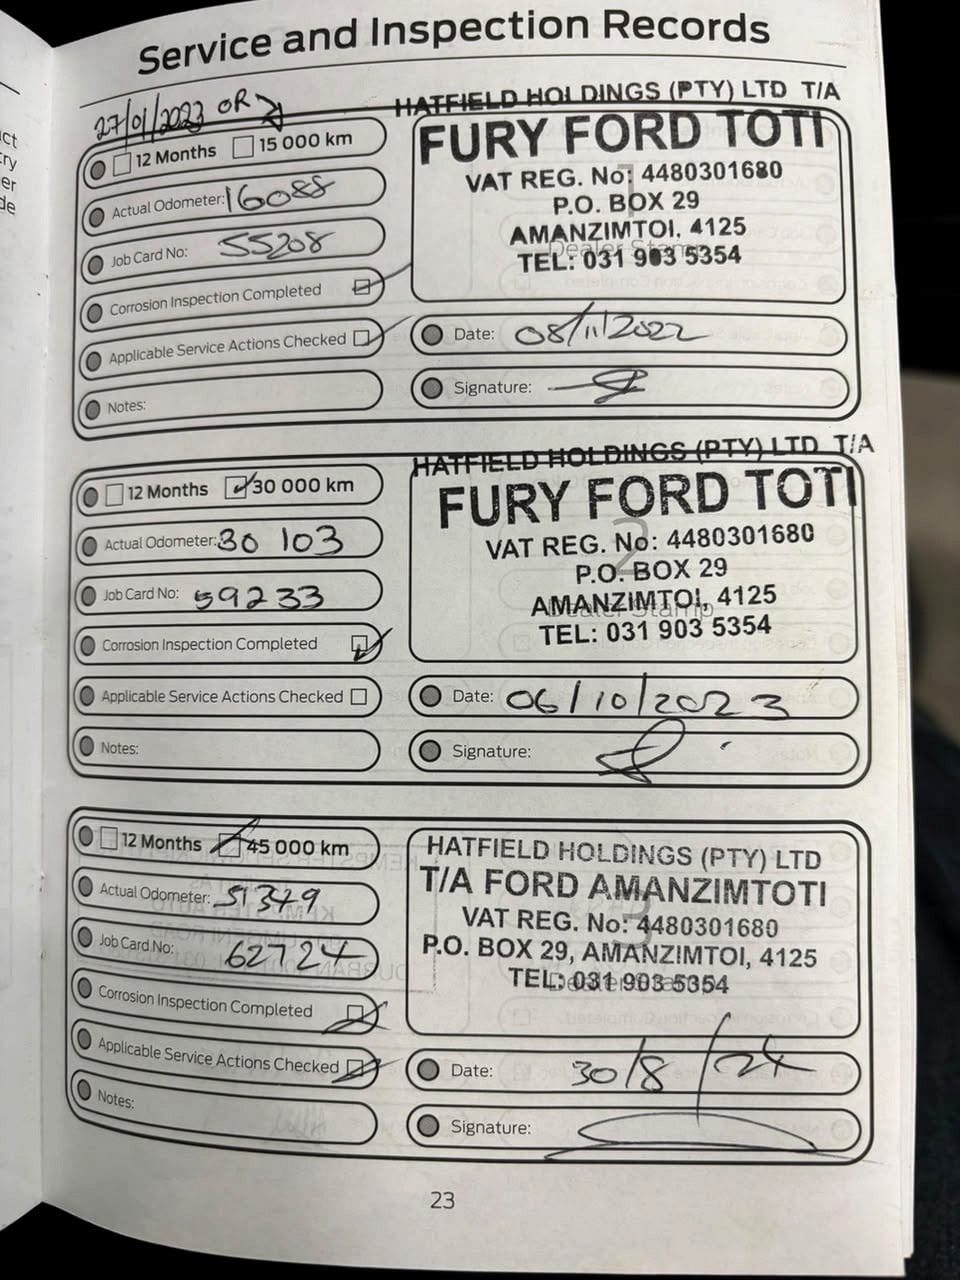 Service and Inspection Records
27/01/2023 OR
12 Months 15 000 km
Actual Odometer: 16088
Job Card No: 55208
Corrosion Inspection Completed
Applicable Service Actions Checked
Notes:
HATFIELD HOLDINGS (PTY) LTD T/A
FURY FORD TOTI
VAT REG. No: 4480301680
P.O. BOX 29
AMANZIMTOI, 4125
Dealer Stamp
TEL: 031 903 5354
Date: 08/11/2022
Signature:
12 Months 30 000 km
Actual Odometer: 30 103
Job Card No: 59233
Corrosion Inspection Completed
Applicable Service Actions Checked
Notes:
HATFIELD HOLDINGS (PTY) LTD T/A
FURY FORD TOTI
2
VAT REG. No: 4480301680
P.O. BOX 29
AMANZIMTOI, 4125
Dealer Stamp
TEL: 031 903 5354
Date: 06/10/2023
Signature:
12 Months 45 000 km
Actual Odometer: 51349
Job Card No: 62724
Corrosion Inspection Completed
Applicable Service Actions Checked
Notes:
HATFIELD HOLDINGS (PTY) LTD
T/A FORD AMANZIMTOTI
3
VAT REG. No: 4480301680
P.O. BOX 29, AMANZIMTOI, 4125
TEL: 031 903 5354
Dealer Stamp
Date: 30/8/24
Signature:
23